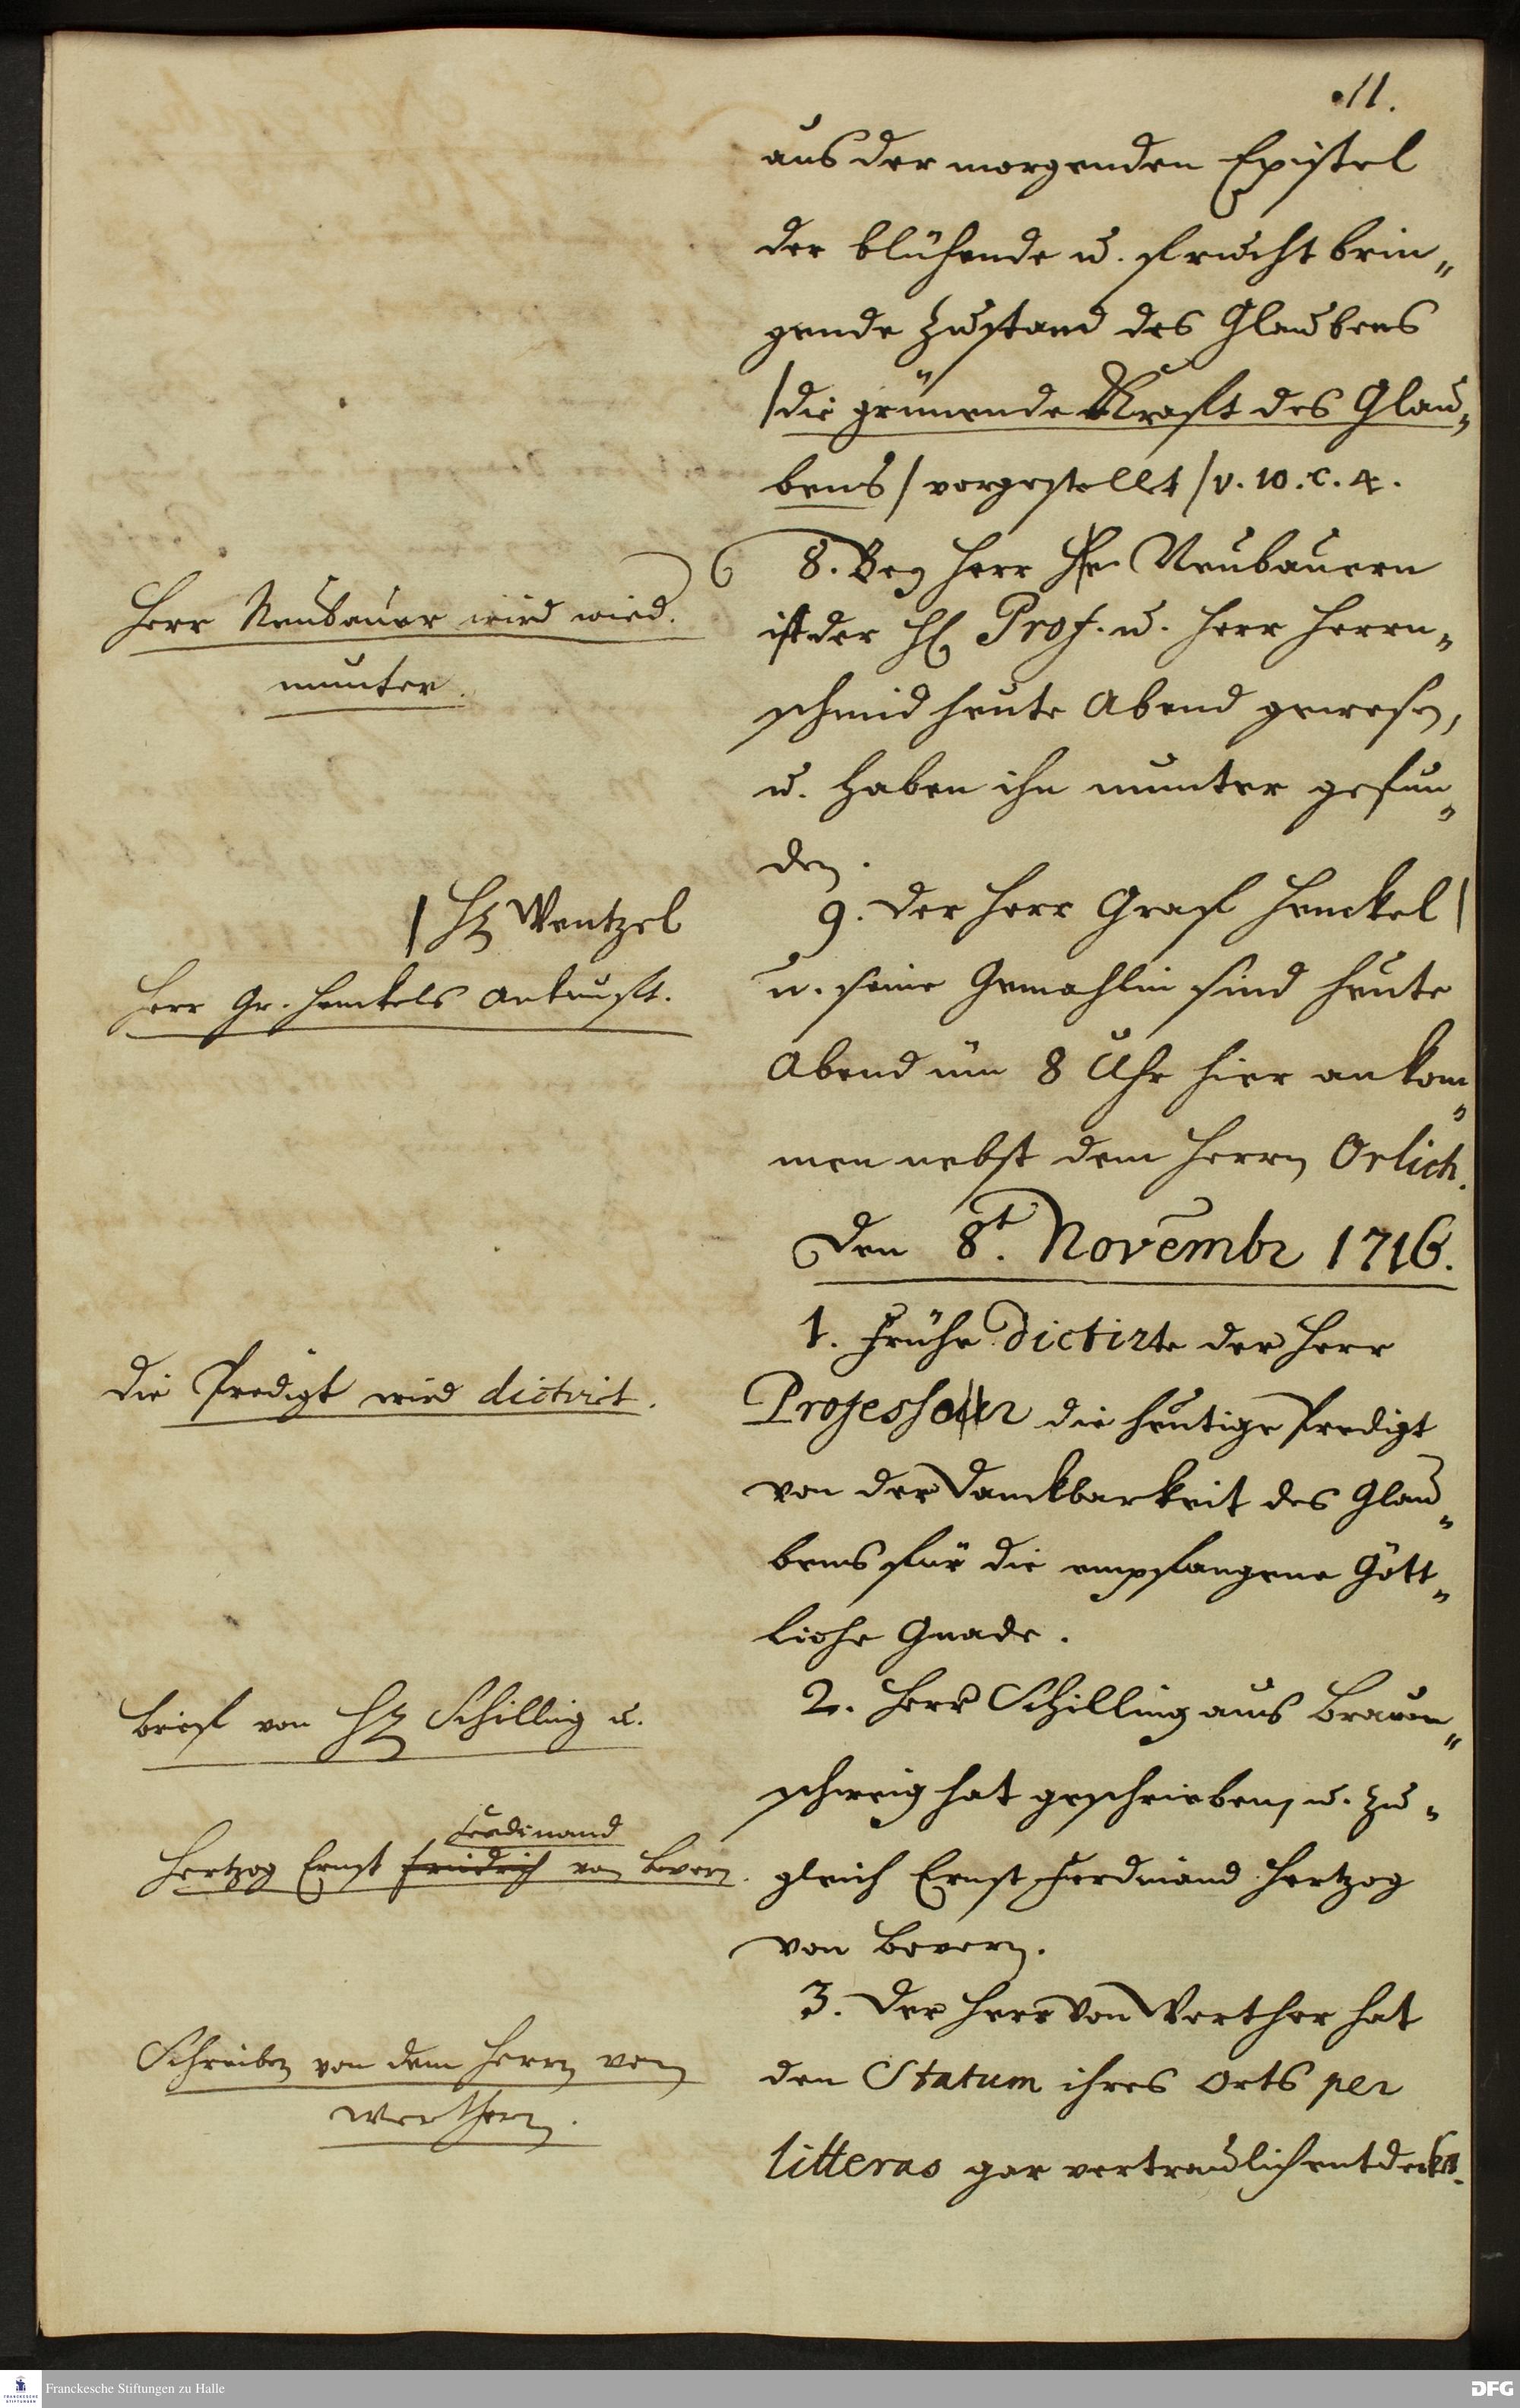 11.
aus der morgenden Epistel
der blühende u. frucht brin„
gende Zustand des Glaubens
/die grünende Krafft des Glau„
bens/ vorgestellet /v. 10. c. 4.
8. Bey Herr Neubauern
ist der H. Prof. u. Herr Herrn„
schmid heute Abend gewesen,
u. haben ihn munter gefun„
den.
Herr Neubauer wird wied.
munter.
9. Der Herr Graf Henckel |
u. seine Gemahlin sind heute
Abend um 8 Uhr hier ankom„
men nebst dem Herrn Orlich.
| H. Wentzel
Herr Gr. Henckels Ankunfft.
Den 8t. Novembr 1716.
1. Frühe dictirte der Herr
Professor die heutige Predigt
von der Danckbarkeit des Glau„
bens für die empfangene Gött„
liche Gnade.
Die Predigt wird dictirt.
2. Herr Schilling aus Braun„
schweig hat geschrieben, u. zu„
gleich Ernst Ferdinand Hertzog
von Bevern.
Brief von H. Schilling u.
Ferdinand
Hertzog Ernst Friedrich von Bevern.
3. Der Herr von Werther hat
den Statum ihres Orts per
litteras gar vertraulich entdecket.
Schreiben von dem Herrn von
Werthern.
Franckesche Stiftungen zu Halle
DFG